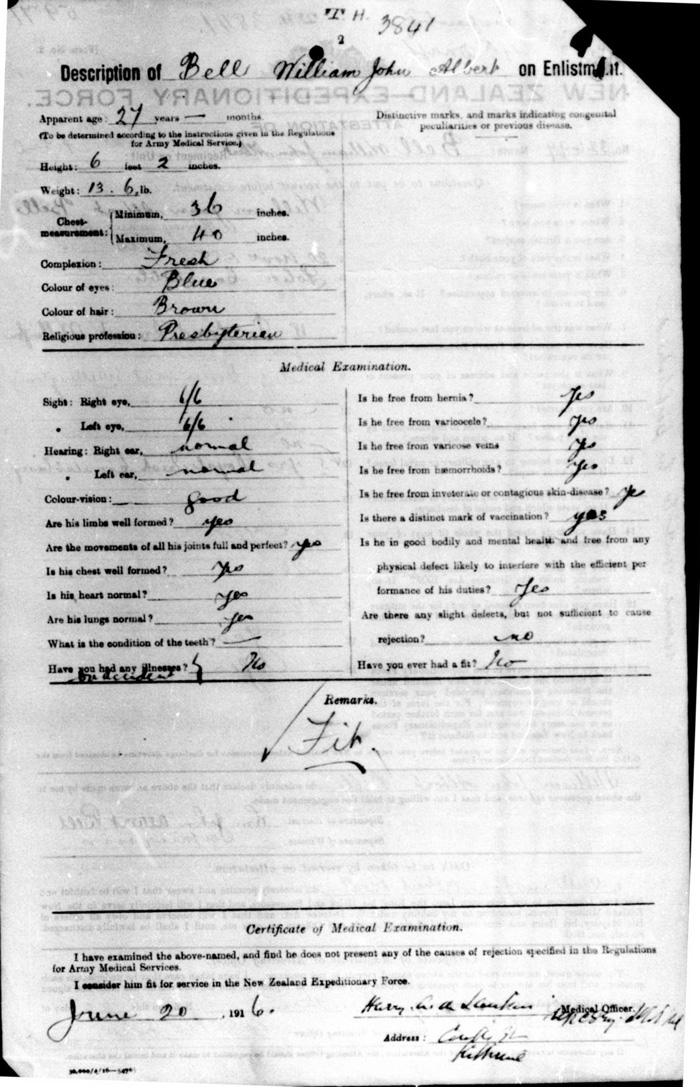 "T" H. 3841
2
Description of Bell William John Albert on Enlistment.
Apparent age: 27 years — months.
(To be determined according to the instructions given in the Regulations
for Army Medical Service.)
Height: 6 feet 2 inches.
Weight: 13. 6 lb.
Chest-measurement: Minimum, 36 inches.
Maximum, 40 inches.
Complexion: Fresh
Colour of eyes: Blue
Colour of hair: Brown
Religious profession: Presbyterian
Distinctive marks, and marks indicating congenital
peculiarities or previous disease.
Medical Examination.
Sight: Right eye, 6/6
" Left eye, 6/6
Hearing: Right ear, normal
" Left ear, normal
Colour-vision: good
Are his limbs well formed? yes
Are the movements of all his joints full and perfect? yes
Is his chest well formed? yes
Is his heart normal? yes
Are his lungs normal? yes
What is the condition of the teeth? —
Have you had any illnesses? No
or accident
Is he free from hernia? yes
Is he free from varicocele? yes
Is he free from varicose veins yes
Is he free from hæmorrhoids? yes
Is he free from inveterate or contagious skin-disease? yes
Is there a distinct mark of vaccination? yes
Is he in good bodily and mental health and free from any
physical defect likely to interfere with the efficient per
formance of his duties? yes
Are there any slight defects, but not sufficient to cause
rejection? no
Have you ever had a fit? No
Remarks.
Fit.
Certificate of Medical Examination.
I have examined the above-named, and find he does not present any of the causes of rejection specified in the Regulations
for Army Medical Services.
I consider him fit for service in the New Zealand Expeditionary Force.
June 20 1916.
Harry Medical Officer.
Address: